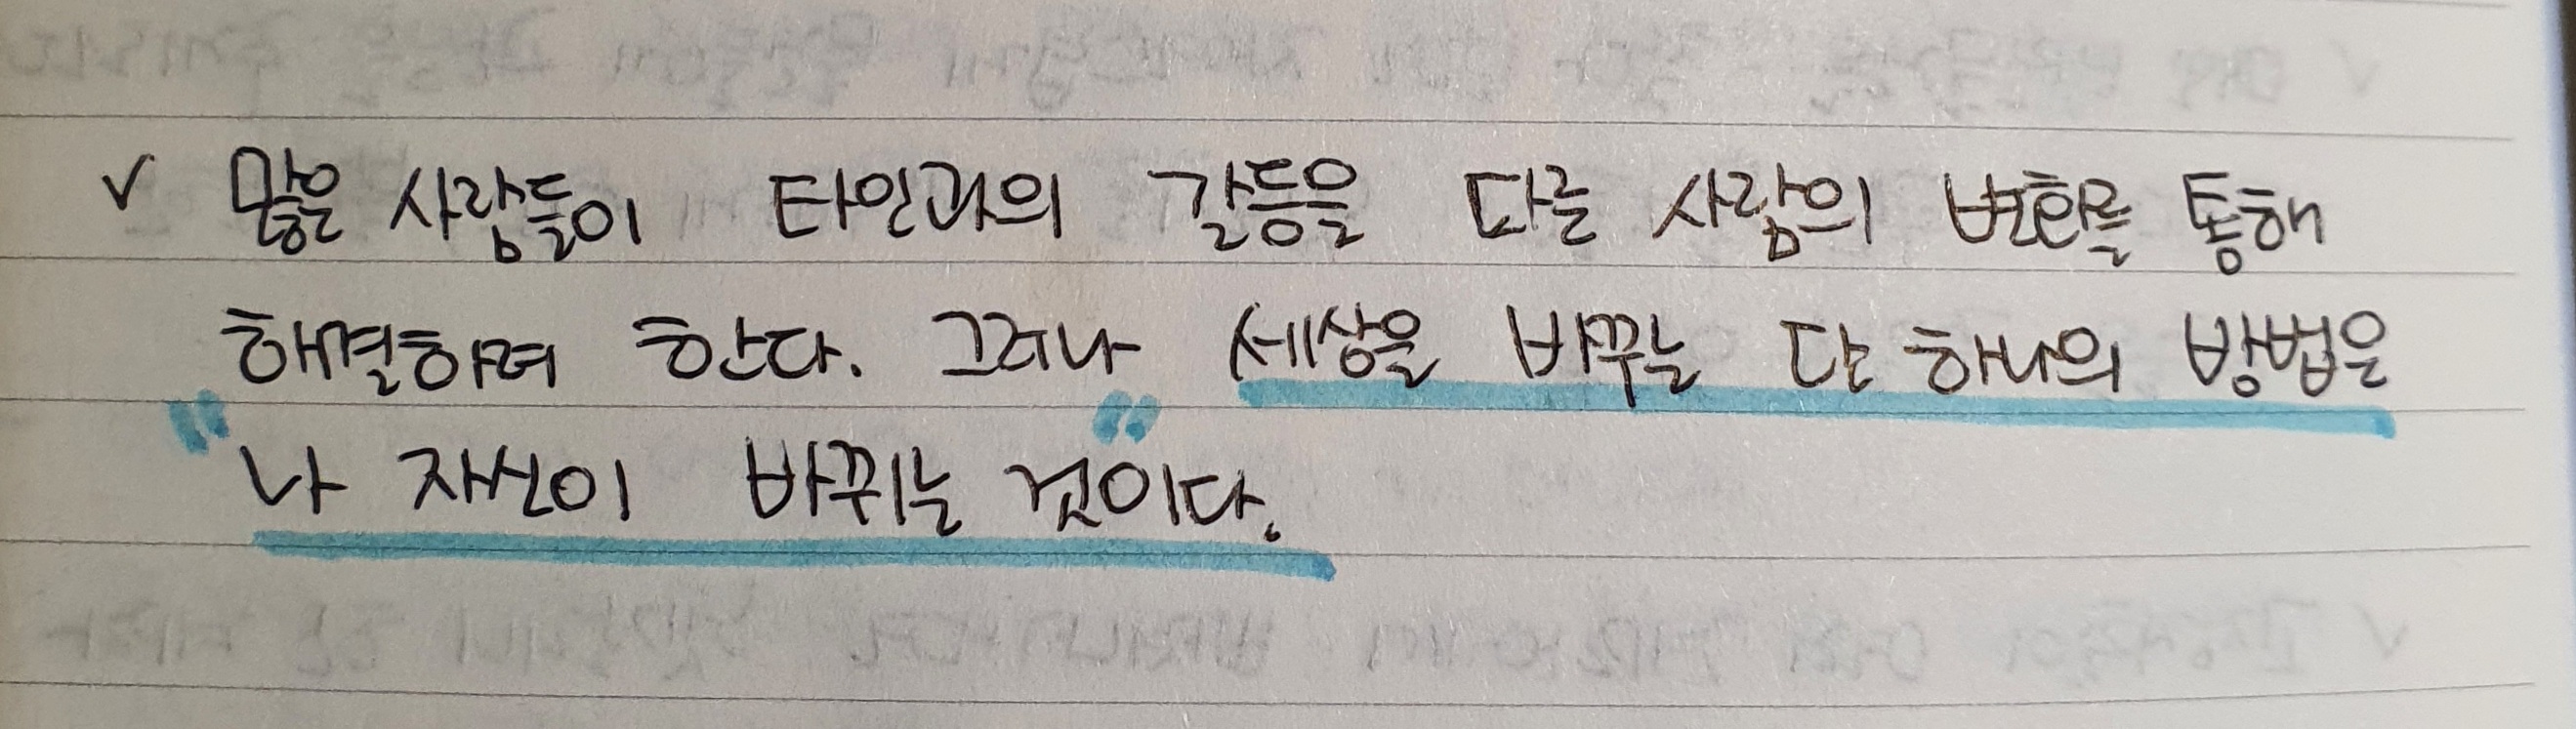 ✓ 많은 사람들이 타인과의 갈등을 다른 사람의 변화를 통해
해결하려 한다. 그러나 세상을 바꾸는 단 하나의 방법은
"나 자신이 바뀌는 것"이다.